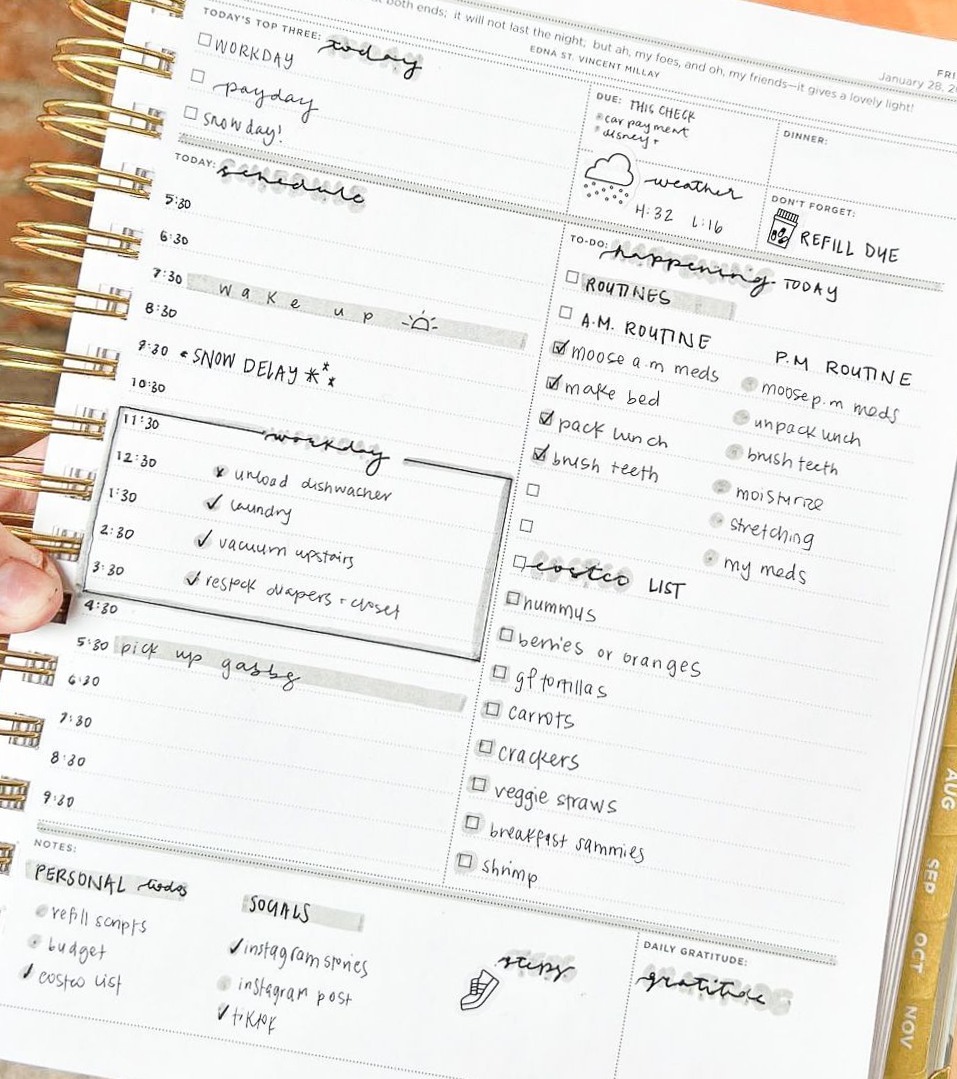 both ends; it will not last the night; but ah, my foes, and oh, my friends—it gives a lovely light!
EDNA ST. VINCENT MILLAY
FRI
January 28, 20
TODAY'S TOP THREE: today
WORKDAY
payday
snow day!
DUE: THIS CHECK
car payment
disney+
weather
H:32 L:16
DINNER:
DON'T FORGET:
REFILL DUE
TODAY: schedule
5:30
6:30
7:30 wake up
8:30
9:30 * SNOW DELAY ***
10:30
11:30 workday
12:30 x unload dishwasher
1:30 ✓ laundry
2:30 ✓ vacuum upstairs
3:30 ✓ restock diapers + closet
4:30
5:30 pick up
6:30
7:30
8:30
9:30
TO-DO: happening TODAY
ROUTINES
A.M. ROUTINE
moose a.m meds
make bed
pack lunch
brush teeth
P.M ROUTINE
moose p.m meds
unpack lunch
brush teeth
moisturize
stretching
my meds
costco LIST
hummus
berries or oranges
gf tortillas
carrots
crackers
veggie straws
breakfast sammies
shrimp
NOTES:
PERSONAL todos
refill scripts
budget
✓ costco list
SOCIALS
✓ instagram stories
instagram post
✓ tiktok
steps
DAILY GRATITUDE:
gratitude
AUG
SEP
OCT
NOV